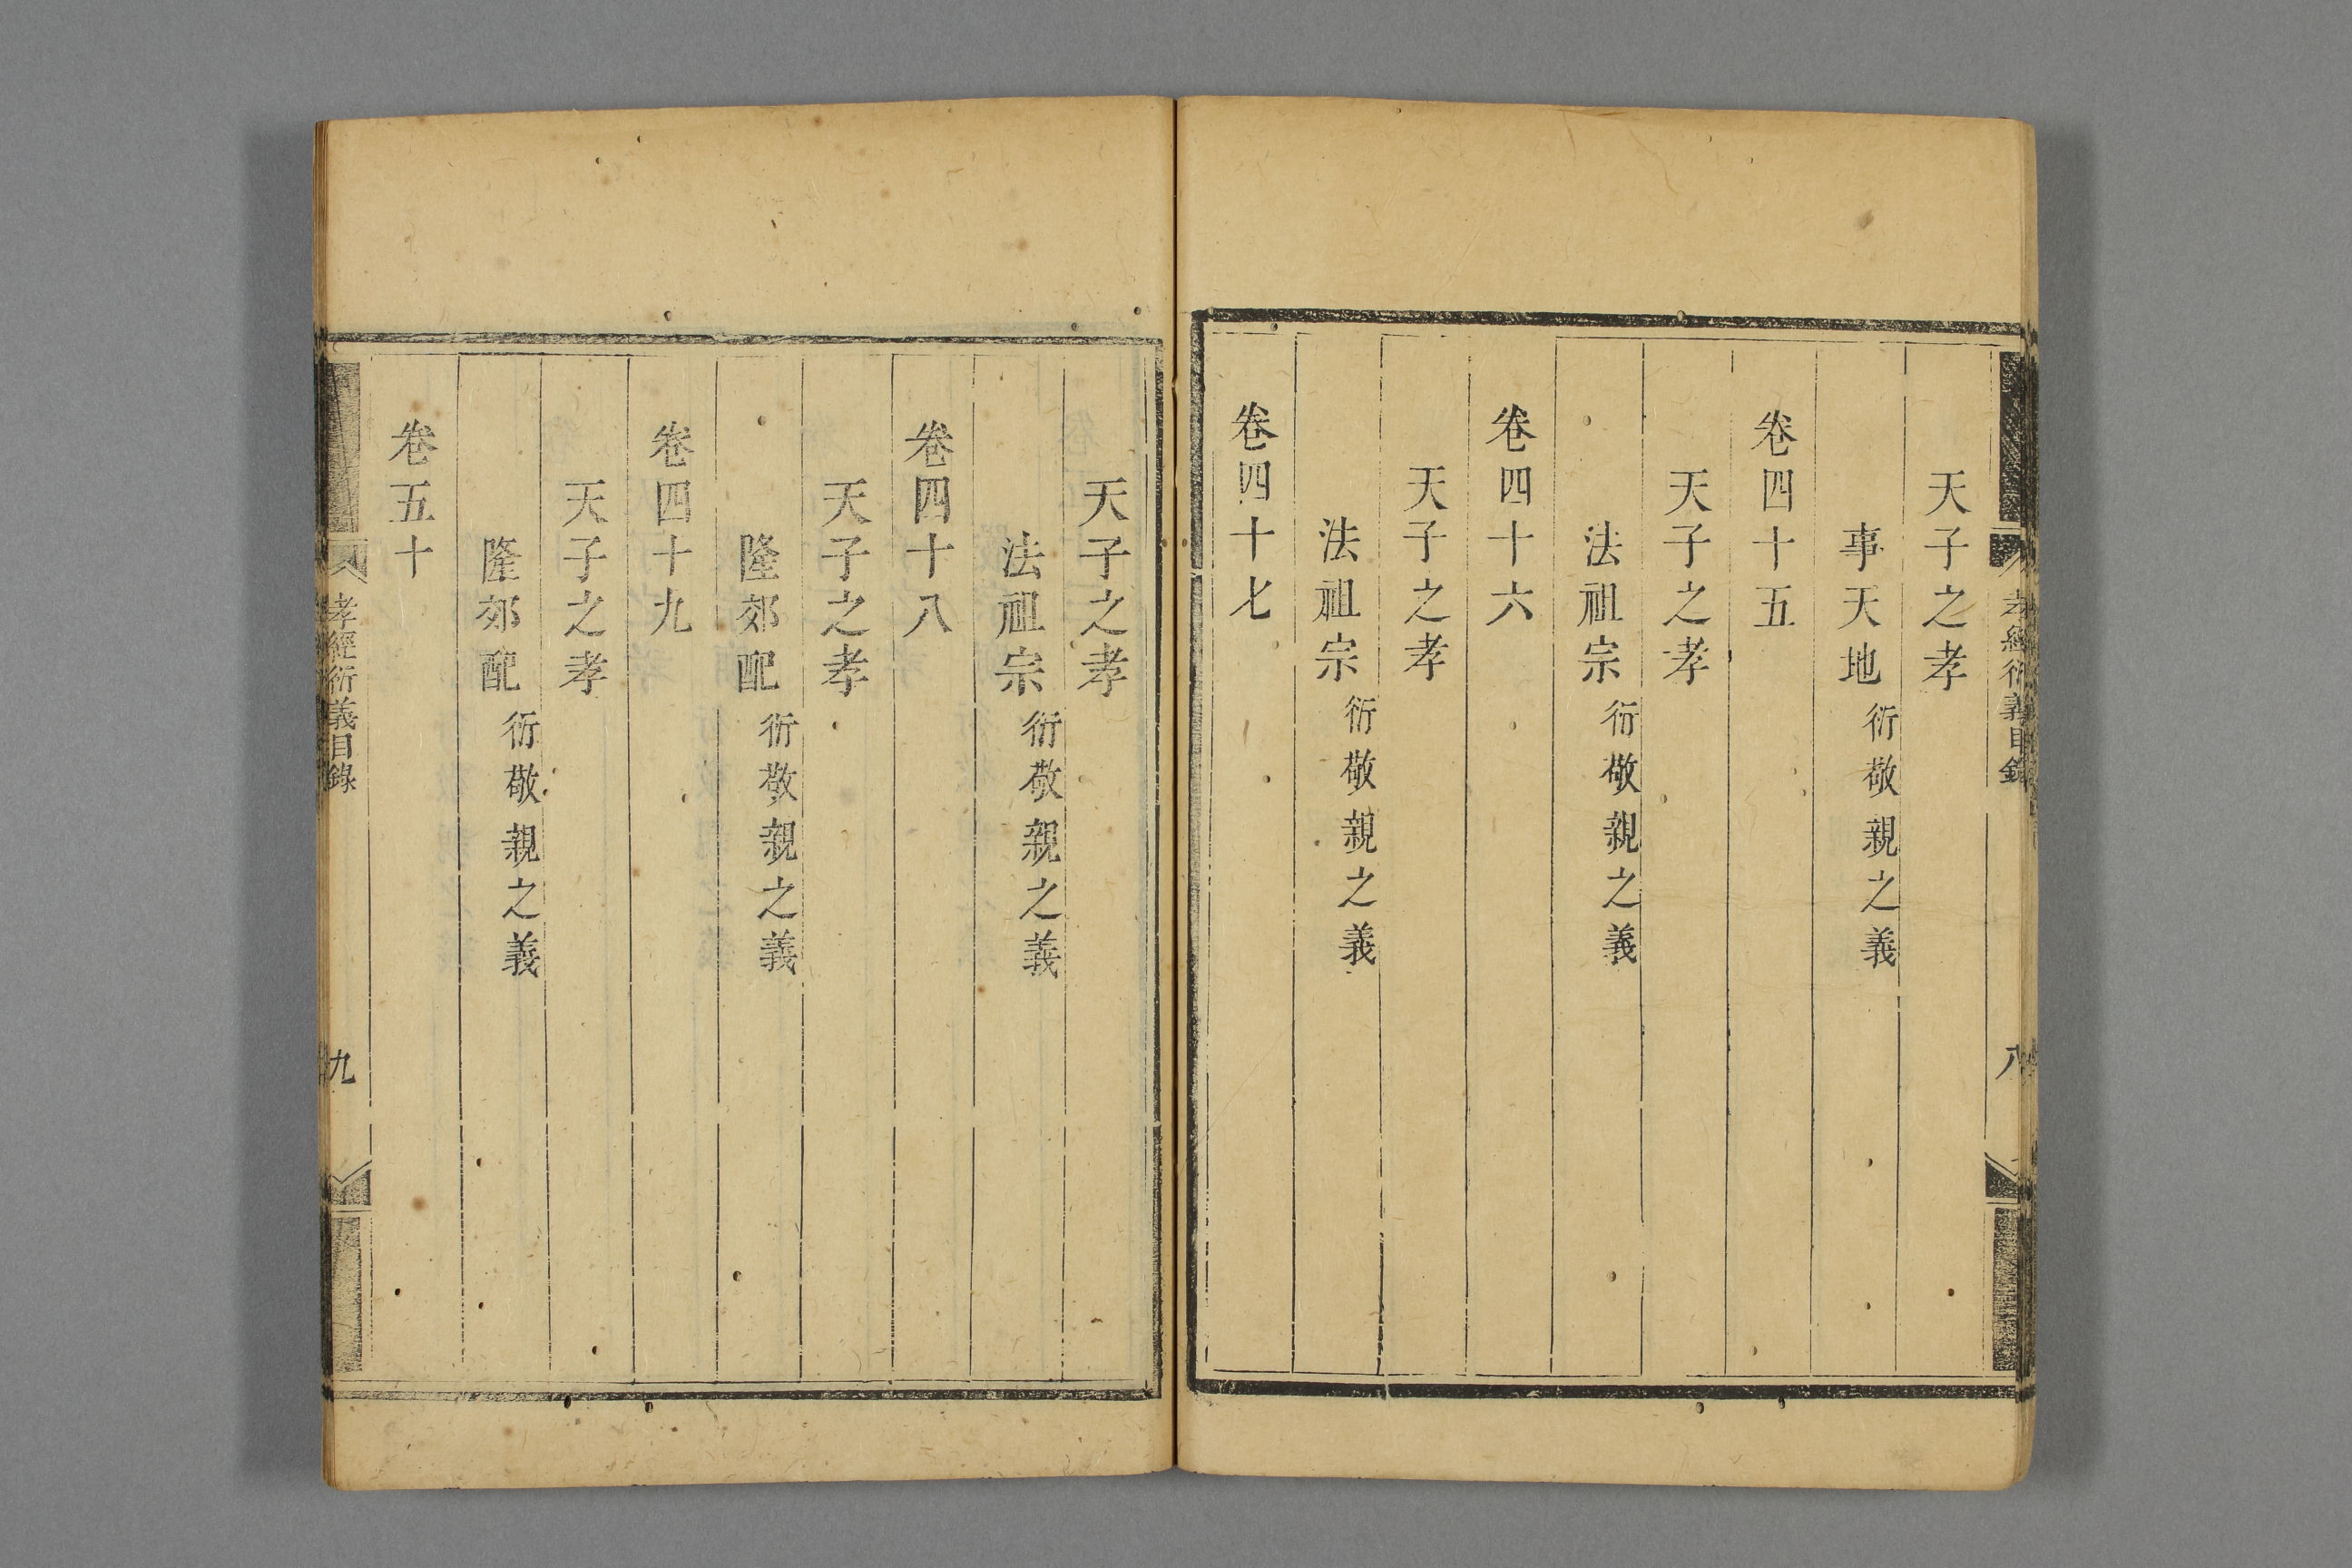 孝經衍義目錄
八
天子之孝
事天地 衍敬親之義
卷四十五
天子之孝
法祖宗 衍敬親之義
卷四十六
天子之孝
法祖宗 衍敬親之義
卷四十七
天子之孝
法祖宗 衍敬親之義
卷四十八
天子之孝
隆郊配 衍敬親之義
卷四十九
天子之孝
隆郊配 衍敬親之義
卷五十
孝經衍義目錄
九